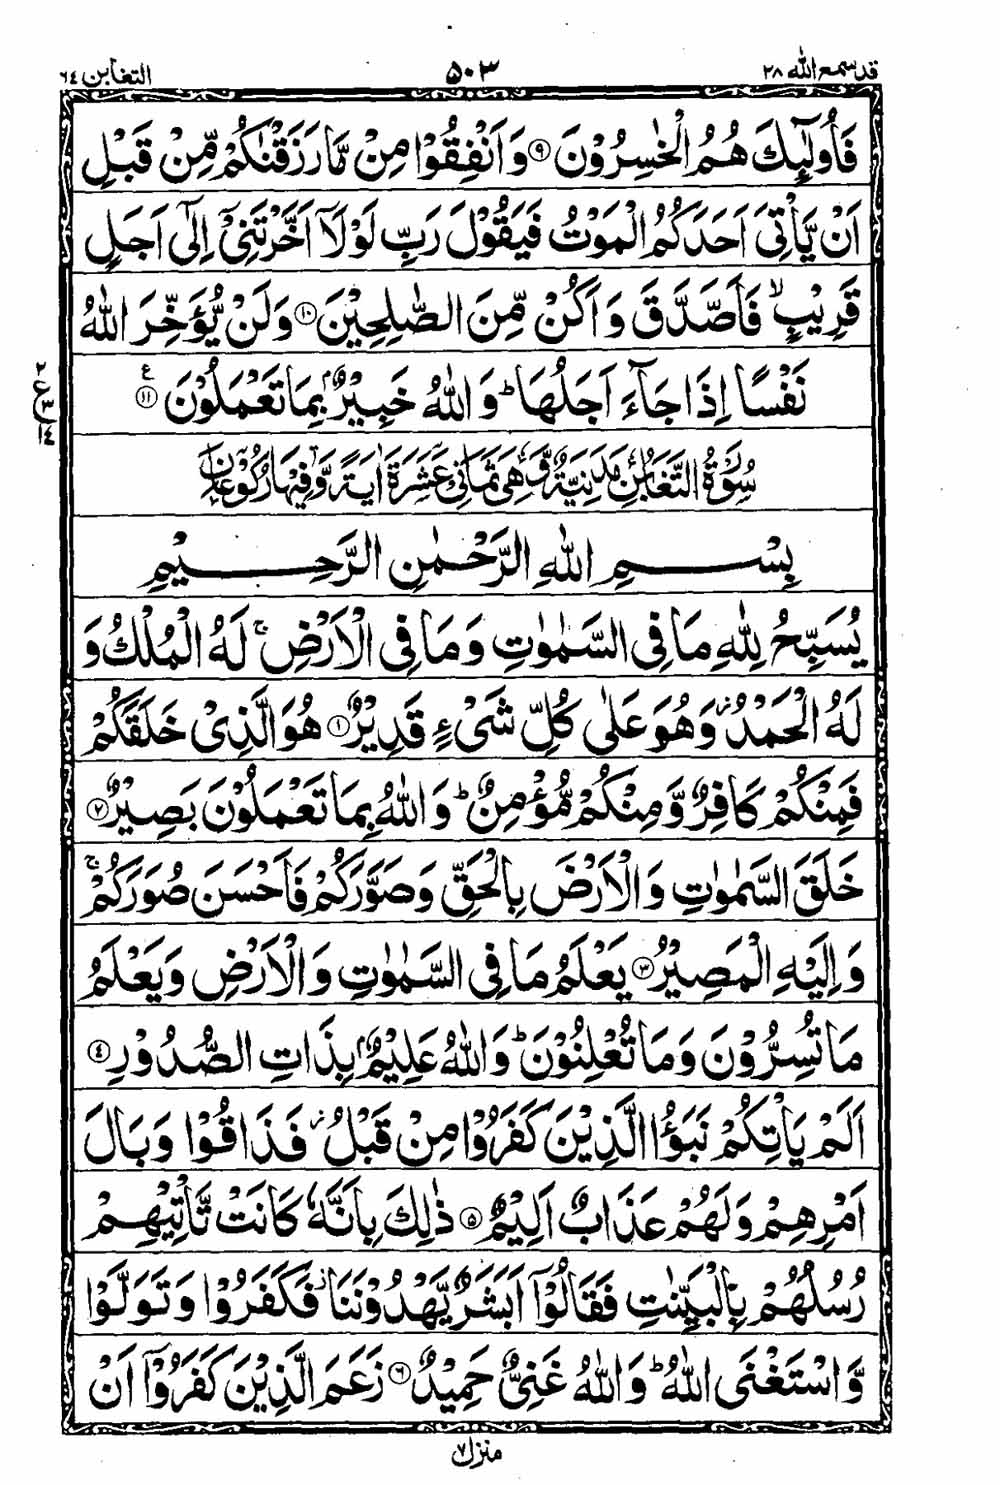 قد سمع الله ٢٨
۵۰۳
التغابن ٦٤
فَاُولٰٓئِكَ هُمُ الْخٰسِرُوْنَ ۹ وَاَنْفِقُوْا مِنْ مَّا رَزَقْنٰكُمْ مِّنْ قَبْلِ
اَنْ يَّاْتِىَ اَحَدَكُمُ الْمَوْتُ فَيَقُوْلَ رَبِّ لَوْلَاۤ اَخَّرْتَنِىْۤ اِلٰٓى اَجَلٍ
قَرِيْبٍۙ فَاَصَّدَّقَ وَاَكُنْ مِّنَ الصّٰلِحِيْنَ ۱۰ وَلَنْ يُّؤَخِّرَ اللّٰهُ
نَفْسًا اِذَا جَآءَ اَجَلُهَاؕ وَاللّٰهُ خَبِيْرٌۢ بِمَا تَعْمَلُوْنَ ۱۱ ع
٢ ع ٣ ١٣
سُوْرَةُ التَّغَابُنِ مَدَنِيَّةٌ وَّهِىَ ثَمَانِىَ عَشَرَةَ اٰيَةً وَّفِيْهَا رُكُوْعَانِ
بِسْمِ اللّٰهِ الرَّحْمٰنِ الرَّحِيْمِ
يُسَبِّحُ لِلّٰهِ مَا فِى السَّمٰوٰتِ وَمَا فِى الْاَرْضِۚ لَهُ الْمُلْكُ وَ
لَهُ الْحَمْدُؗ وَهُوَ عَلٰى كُلِّ شَىْءٍ قَدِيْرٌ ۱ هُوَ الَّذِىْ خَلَقَكُمْ
فَمِنْكُمْ كَافِرٌ وَّمِنْكُمْ مُّؤْمِنٌؕ وَاللّٰهُ بِمَا تَعْمَلُوْنَ بَصِيْرٌ ۲
خَلَقَ السَّمٰوٰتِ وَالْاَرْضَ بِالْحَقِّ وَصَوَّرَكُمْ فَاَحْسَنَ صُوَرَكُمْۚ
وَاِلَيْهِ الْمَصِيْرُ ۳ يَعْلَمُ مَا فِى السَّمٰوٰتِ وَالْاَرْضِ وَيَعْلَمُ
مَا تُسِرُّوْنَ وَمَا تُعْلِنُوْنَؕ وَاللّٰهُ عَلِيْمٌۢ بِذَاتِ الصُّدُوْرِ ٤
اَلَمْ يَاْتِكُمْ نَبَؤُا الَّذِيْنَ كَفَرُوْا مِنْ قَبْلُؗ فَذَاقُوْا وَبَالَ
اَمْرِهِمْ وَلَهُمْ عَذَابٌ اَلِيْمٌ ۵ ذٰلِكَ بِاَنَّهٗ كَانَتْ تَّاْتِيْهِمْ
رُسُلُهُمْ بِالْبَيِّنٰتِ فَقَالُوْۤا اَبَشَرٌ يَّهْدُوْنَنَاؗ فَكَفَرُوْا وَتَوَلَّوْا
وَّاسْتَغْنَى اللّٰهُؕ وَاللّٰهُ غَنِىٌّ حَمِيْدٌ ٦ زَعَمَ الَّذِيْنَ كَفَرُوْۤا اَنْ
منزل ۷